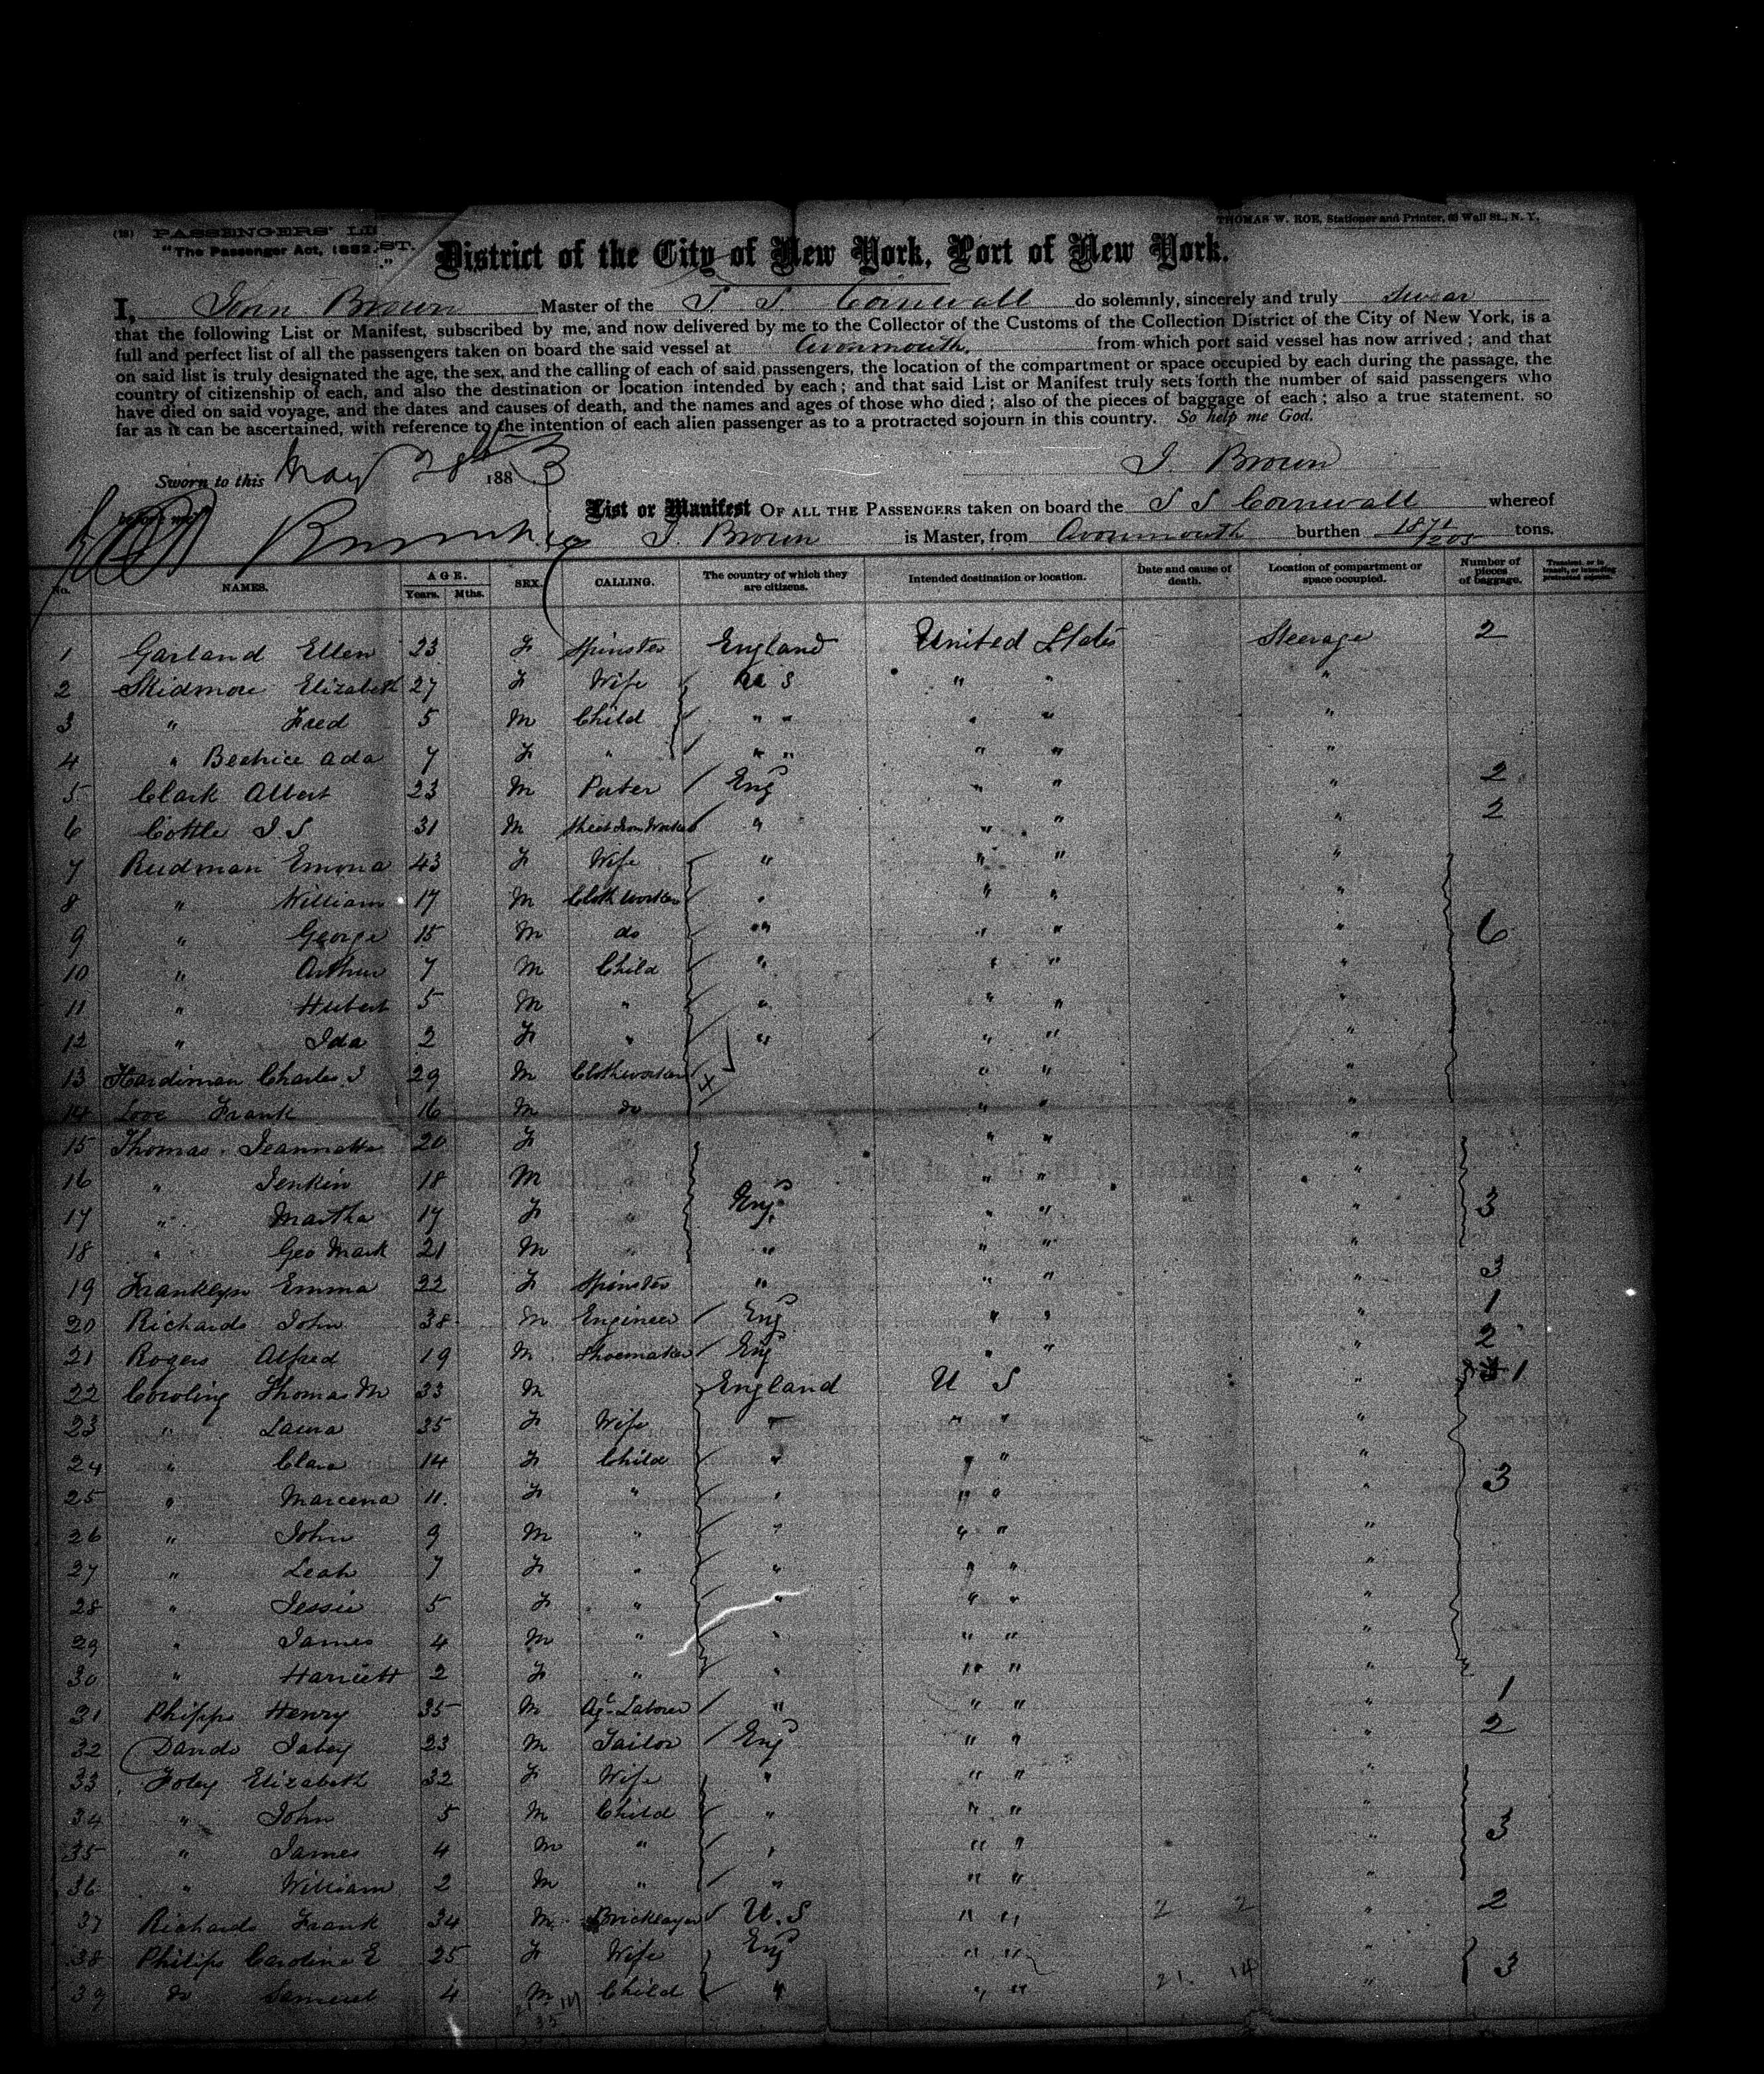 (18) PASSENGERS' LIST.
"The Passenger Act, 1882."
THOMAS W. ROE, Stationer and Printer, Wall St., N. Y.
District of the City of New York, Port of New York.
I, John Brown Master of the S. S. Cornwall do solemnly, sincerely and truly swear
that the following List or Manifest, subscribed by me, and now delivered by me to the Collector of the Customs of the Collection District of the City of New York, is a
full and perfect list of all the passengers taken on board the said vessel at Avonmouth, from which port said vessel has now arrived; and that
on said list is truly designated the age, the sex, and the calling of each of said passengers, the location of the compartment or space occupied by each during the passage, the
country of citizenship of each, and also the destination or location intended by each; and that said List or Manifest truly sets forth the number of said passengers who
have died on said voyage, and the dates and causes of death, and the names and ages of those who died; also of the pieces of baggage of each; also a true statement, so
far as it can be ascertained, with reference to the intention of each alien passenger as to a protracted sojourn in this country. So help me God.
Sworn to this May 28th 1883 J. Brown
before me
List or Manifest OF ALL THE PASSENGERS taken on board the S S Cornwall whereof
J. Brown is Master, from Avonmouth burthen 1871/1205 tons.
No. NAMES. AGE. Years. Mths. SEX. CALLING. The country of which they are citizens. Intended destination or location. Date and cause of death. Location of compartment or space occupied. Number of pieces of baggage. Transient, or in transit, or intending protracted sojourn.
1 Garland Ellen 23 F Spinster England United States Steerage 2
2 Skidmore Elizabeth 27 F Wife U S " " "
3 " Fred 5 M Child " " " " "
4 " Beatrice Ada 7 F " " " " " "
5 Clark Albert 23 M Porter Eng " " " 2
6 Cottle J. S 31 M Sheet Iron Worker " " " " 2
7 Rudman Emma 43 F Wife " " " "
8 " William 17 M Cloth worker " " " "
9 " George 15 M do " " " " 6
10 " Arthur 7 M Child " " " "
11 " Hubert 5 M " " " " "
12 " Ida 2 F " " " " "
13 Hardiman Charles J 29 M Clothworker X " " "
14 Love Frank 16 M do " " "
15 Thomas Jeannetta 20 F " " "
16 " Jenkin 18 M " " " "
17 " Martha 17 F " Eng " " " 3
18 " Geo Mark 21 M " " " " "
19 Franklyn Emma 22 F Spinster " " " " 3
20 Richards John 38 M Engineer Eng " " " 1
21 Rogers Alfred 19 M Shoemaker Eng " " " 2
22 Cowling Thomas M 33 M England U S " 1
23 " Laura 35 F Wife " " " "
24 " Clara 14 F Child " " " "
25 " Marcena 11 F " " " " " 3
26 " John 9 M " " " " "
27 " Leah 7 F " " " " "
28 " Jessie 5 F " " " " "
29 " James 4 M " " " " "
30 " Harriett 2 F " " " " "
31 Phipps Henry 35 M Ag. Labourer " " " " 1
32 Dando Jabey 23 M Tailor Eng " " " 2
33 Foley Elizabeth 32 F Wife " " " "
34 " John 5 M Child " " " "
35 " James 4 M " " " " " 3
36 " William 2 M " " " " "
37 Richards Frank 34 M Bricklayer U. S " " 2 2 " 2
38 Philips Caroline E 25 F Wife Eng " " "
39 do Samuel 4 M Child " " " 21. 14 " 3
35